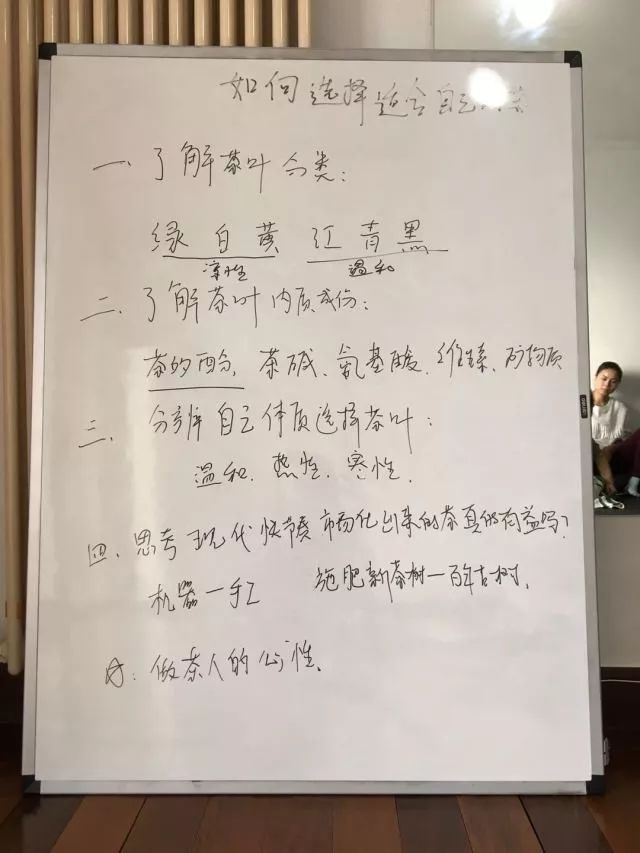 如何选择适合自己的茶
一、了解茶叶分类：
绿白黄 红青黑
凉性 温和
二、了解茶叶内质成份：
茶的酉分、茶碱、氨基酸、维臻、矿物质
三、分辨自己体质选择茶叶：
温和、热性、寒性、
四、思考现代快节奏市场化出来的茶真的有益吗？
机器—手工 施肥新茶树—百年古树、
做茶人的心性、